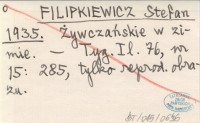 FILIPKIEWICZ Stefan
1935. Żywczańskie w zi-
mie. — Tyg. Il. 76, nr
15: 285, tylko reprod. obra-
zu.